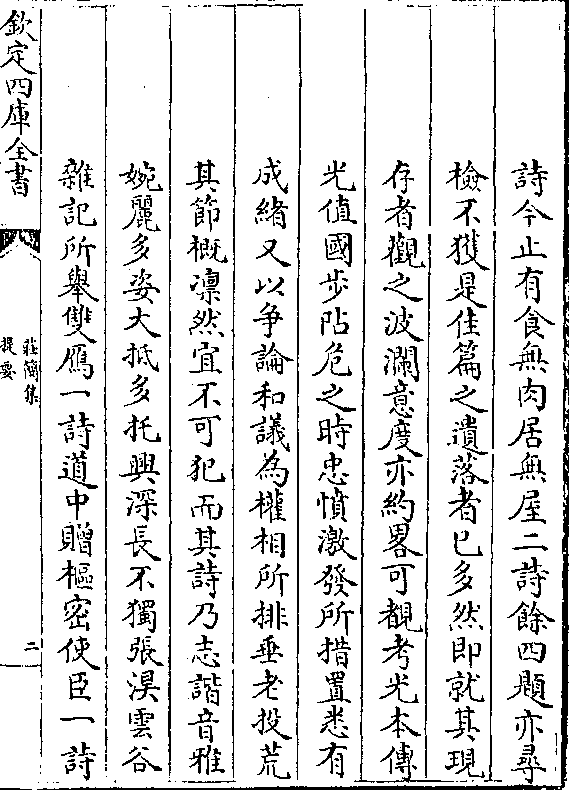 詩今止有食無肉居無屋二詩餘四題亦尋
檢不獲是佳篇之遺落者已多然即就其現
存者觀之波瀾意度亦約畧可覩考光本傳
光值國步阽危之時忠憤激發所措置悉有
成緒又以爭論和議為權相所排垂老投荒
其節概凛然宜不可犯而其詩乃志諧音雅
婉麗多姿大抵多托興深長不獨張淏雲谷
雜記所舉雙鴈一詩道中贈樞密使臣一詩
欽定四庫全書
莊簡集
提要
二